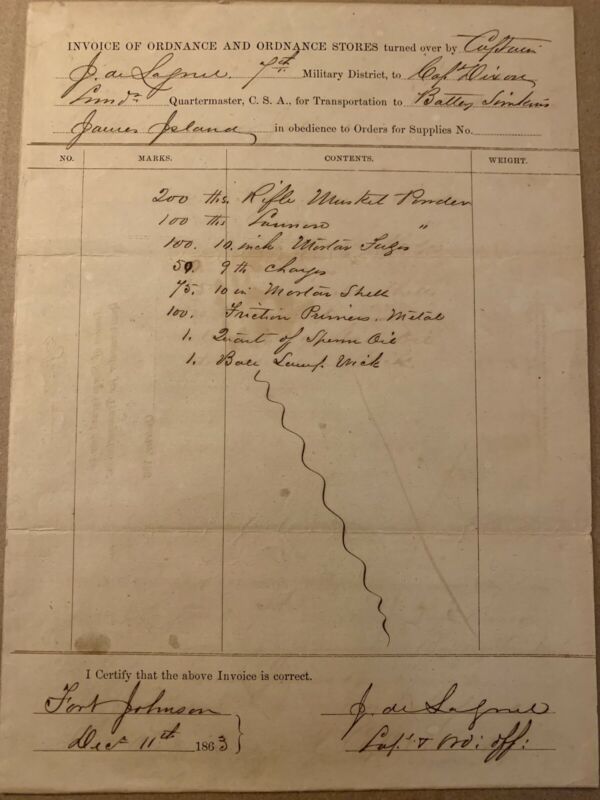 INVOICE OF ORDNANCE AND ORDNANCE STORES turned over by Captain
J. de Lagnel. 7th Military District, to Capt Dixon
Quartermaster, C. S. A., for Transportation to Battery Simkins
James Island in obedience to Orders for Supplies No.
NO. MARKS. CONTENTS. WEIGHT.
200 lbs. Rifle Musket Powder
100 lbs Cannon "
100. 10 inch Mortar Fuzes
50. 9 lb Charges
75. 10 in Mortar Shell
100. Friction Primers. Metal
1. Quart of Sperm Oil
1. Ball Lamp Wick
I Certify that the above Invoice is correct.
Fort Johnson J. de Lagnel
Dec 11th 1863 Capt & Ord: Off: